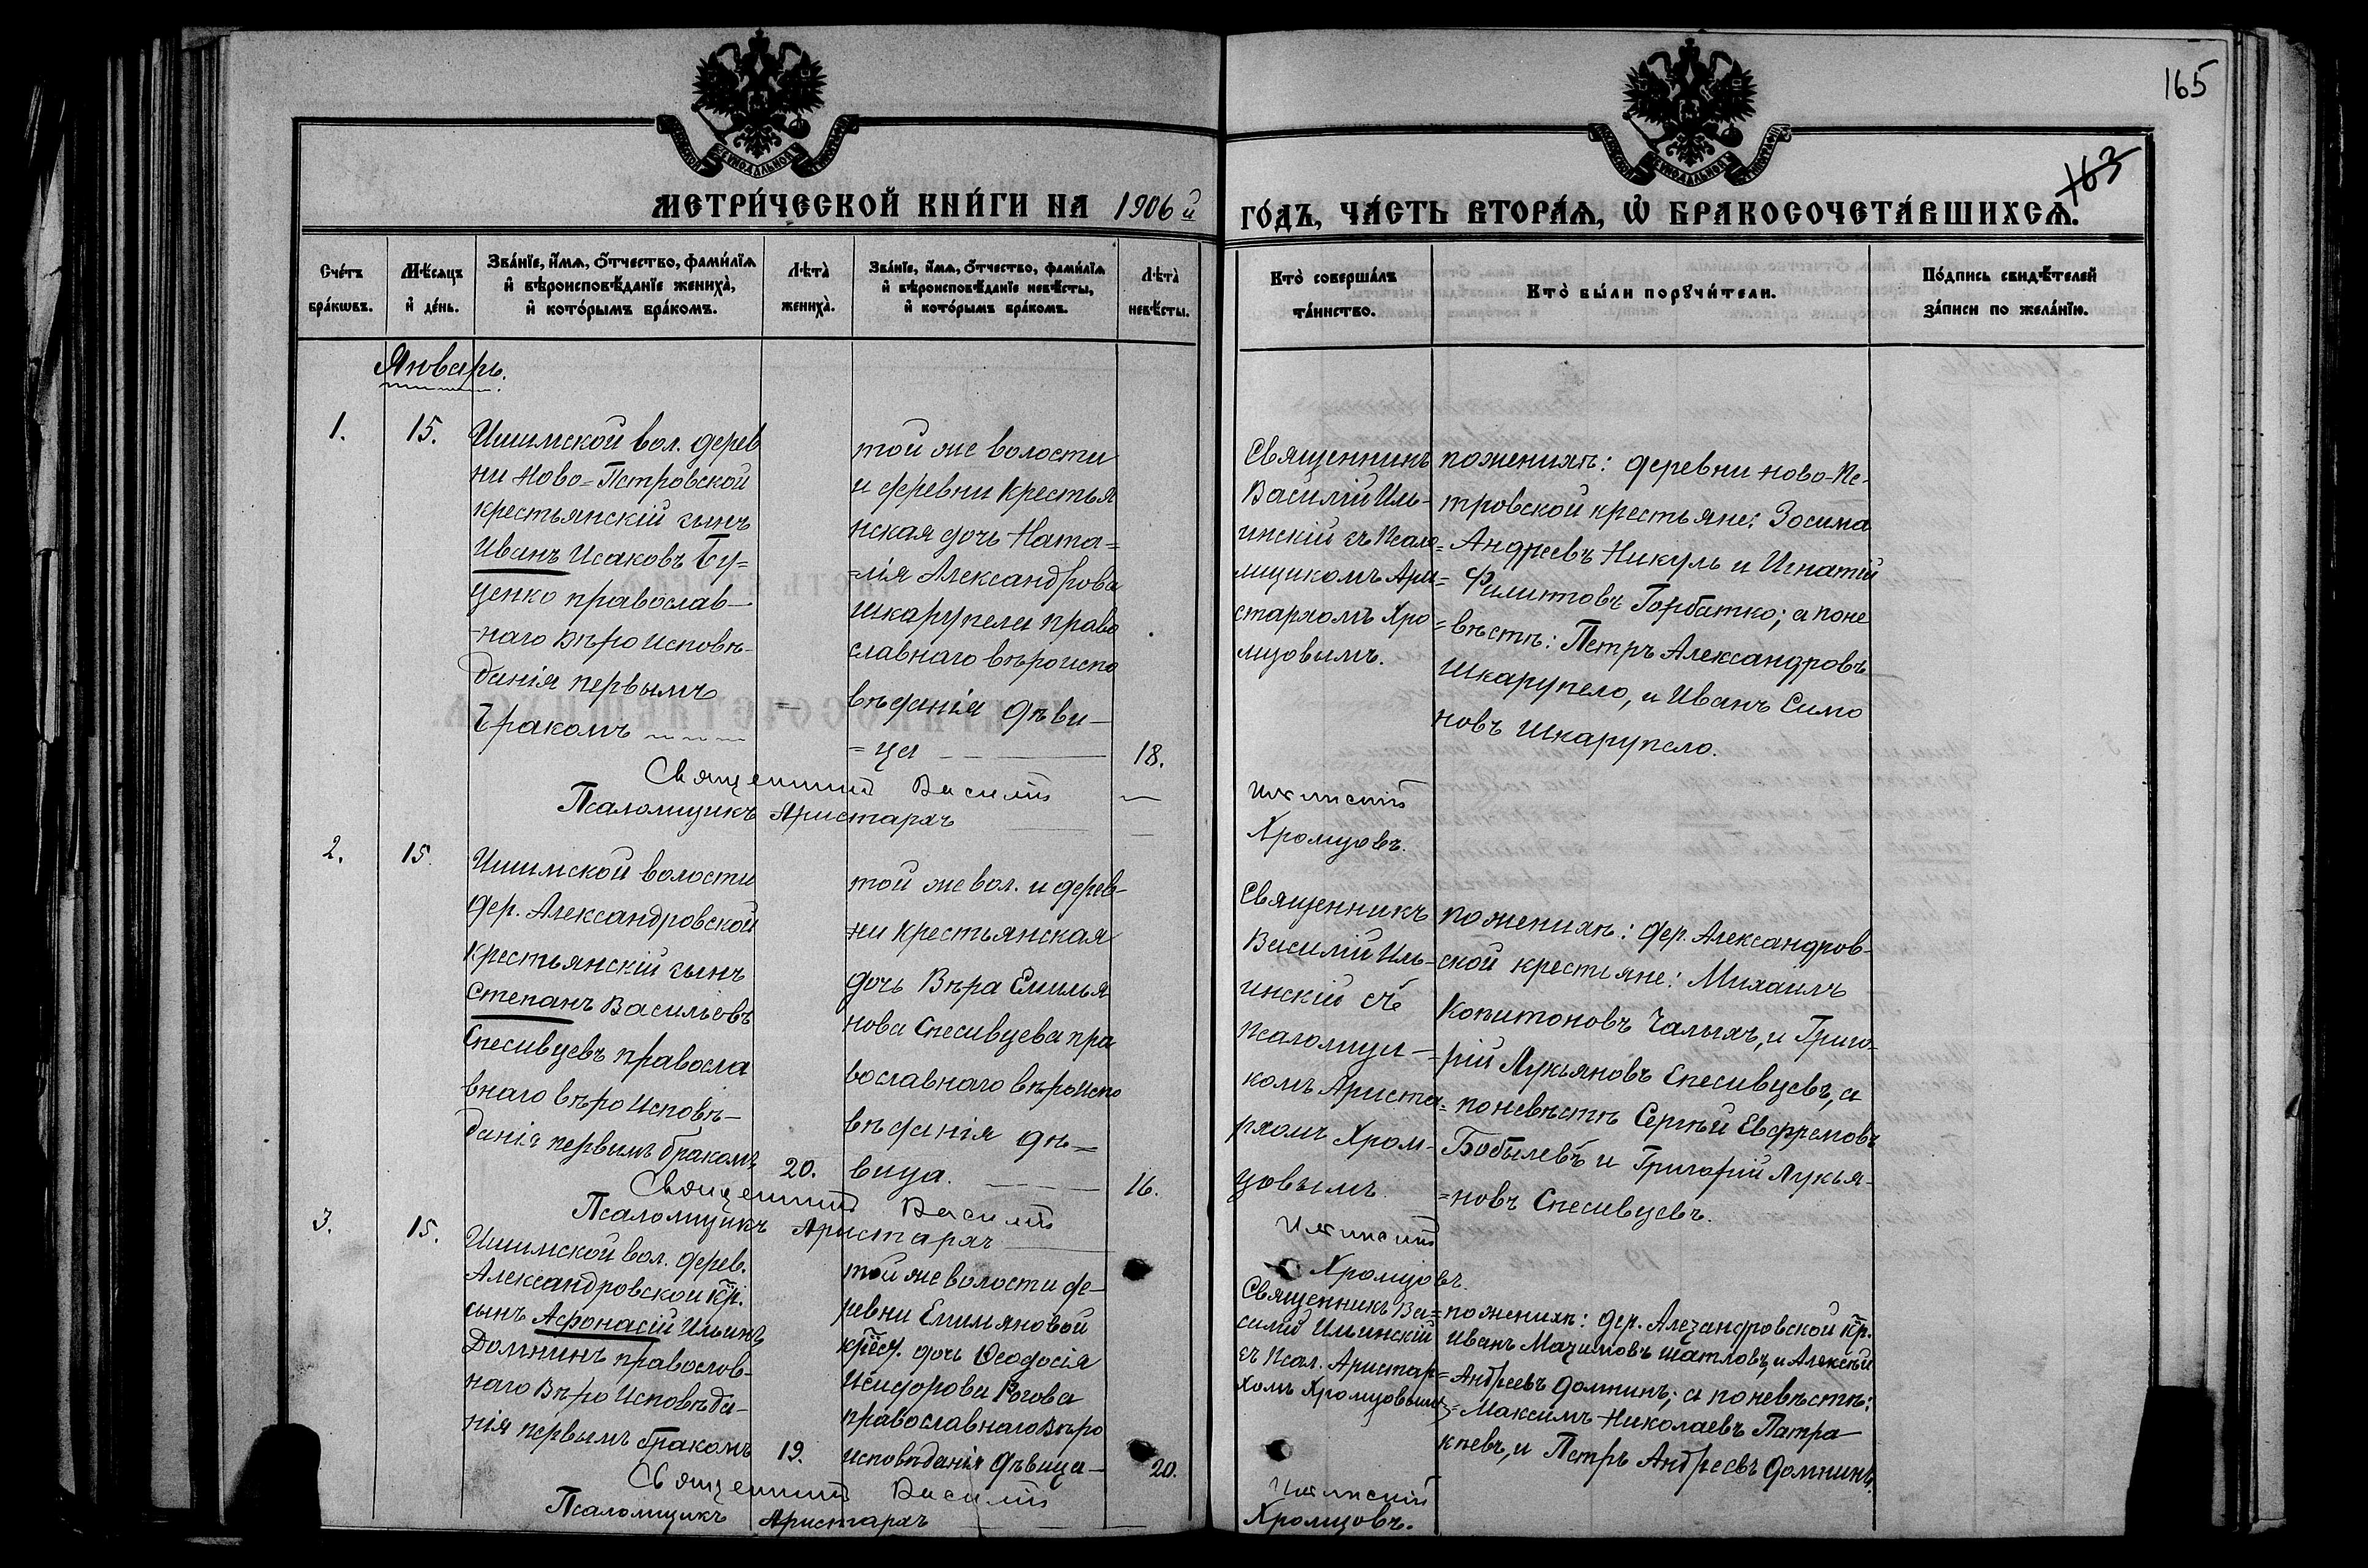 165
163
МЕТРИ́ЧЕСКОЙ КНИ́ГИ НА 1906й
ГО́ДЪ, ЧА́СТЬ ВТОРА́Ѧ, Ѽ БРАКОСОЧЕТА́ВШИХСѦ.
Сче́тъ
бра́кѡвъ.
Мѣ́сяцъ
и҆ де́нь.
Зва́нїе, и҆́мѧ, ѻ҆́тчество, фами́лїѧ
и҆ вѣроисповѣ́данїе жениха̀,
и҆ кото́рымъ бра́комъ.
Лѣта̀
жениха̀.
Зва́нїе, и҆́мѧ, ѻ҆́тчество, фами́лїѧ
и҆ вѣроисповѣ́данїе невѣ́сты,
и҆ кото́рымъ бра́комъ.
Лѣта̀
невѣ́сты.
Кто̀ соверша́лъ
та́инство.
Кто̀ бы́ли порꙋчи́тели.
По́дпись свидѣ́телей
за́писи по жела́нїю.
Январь.
1.
15.
Ишимской вол. дерев
ни Ново=Петровской
крестьянскій сынъ
Иванъ Исаковъ Бу=
ценко православ-
-наго вѣроисповѣ-
данія первымъ
бракомъ
той же волости
и деревни крестья
нская дочь Ната=
=лія Александрова
Шкарупела право
славнаго вѣроиспо
вѣданія дѣви-
=ца
18.
Священникъ
Василій Иль-
инскій съ Псало=
мщикомъ Ари=
стархомъ Хро=
мцовымъ.
по женихѣ: деревни Ново-Пе-
тровской крестьяне: Зосима
Андреевъ Никуль и Игнатій
Филиповъ Горбатко; а поне
вѣстѣ: Петръ Александровъ
Шкарупело, и Иванъ Симо
новъ Шкарупело.
Священникъ Василій
Ильинскій
Псаломщикъ Аристархъ
Хромцовъ.
2.
15.
Ишимской волости
дер. Александровской
крестьянскій сынъ
Степанъ Васильевъ
Спесивцевъ правосла
внаго вѣроисповѣ-
данія первымъ бракомъ
20.
той же вол. и дерев-
ни крестьянская
дочь Вѣра Емилья
нова Спесивцева пра
вославнаго вѣроиспо
вѣданія дѣ=
вица.
16.
Священникъ
Василій Иль-
инскій съ
псаломщи-
комъ Ариста=
рхомъ Хром-
цовымъ.
по женихѣ: дер. Александров-
ской крестьяне: Михаилъ
Копитоновъ Чалыхъ, и Григо-
рій Лукьяновъ Спесивцевъ, а
по невѣстѣ Сергѣй Евфремовъ
Бобылевъ и Григорій Лукья-
=новъ Спесивцевъ.
Священникъ Василій
Ильинскій
Псаломщикъ Аристархъ
Хромцовъ.
3.
15.
Ишимской вол. дерев.
Александровской кр.
сынъ Афонасій Ильинъ
Домнинъ православ-
наго вѣроисповѣда-
нія первымъ бракомъ
19.
той же волости де-
ревни Емильяновой
крест. дочь Ѳеодосія
Исидорова Рогова
православнаго вѣро
исповѣданія дѣвица-
20.
Священникъ Ва=
силій Ильинскій
съ Псал. Аристар=
хомъ Хромцовымъ
по женихѣ: дер. Алезандровской кр.
Иванъ Мазимовъ Шатловъ, и Алексѣй
Андреевъ Домнинъ; а по невѣстѣ:
Максимъ Николаевъ Патра-
кѣевъ, и Петръ Андреевъ Домнинъ.
Священникъ Василій
Ильинскій
Псаломщикъ Аристархъ
Хромцовъ.